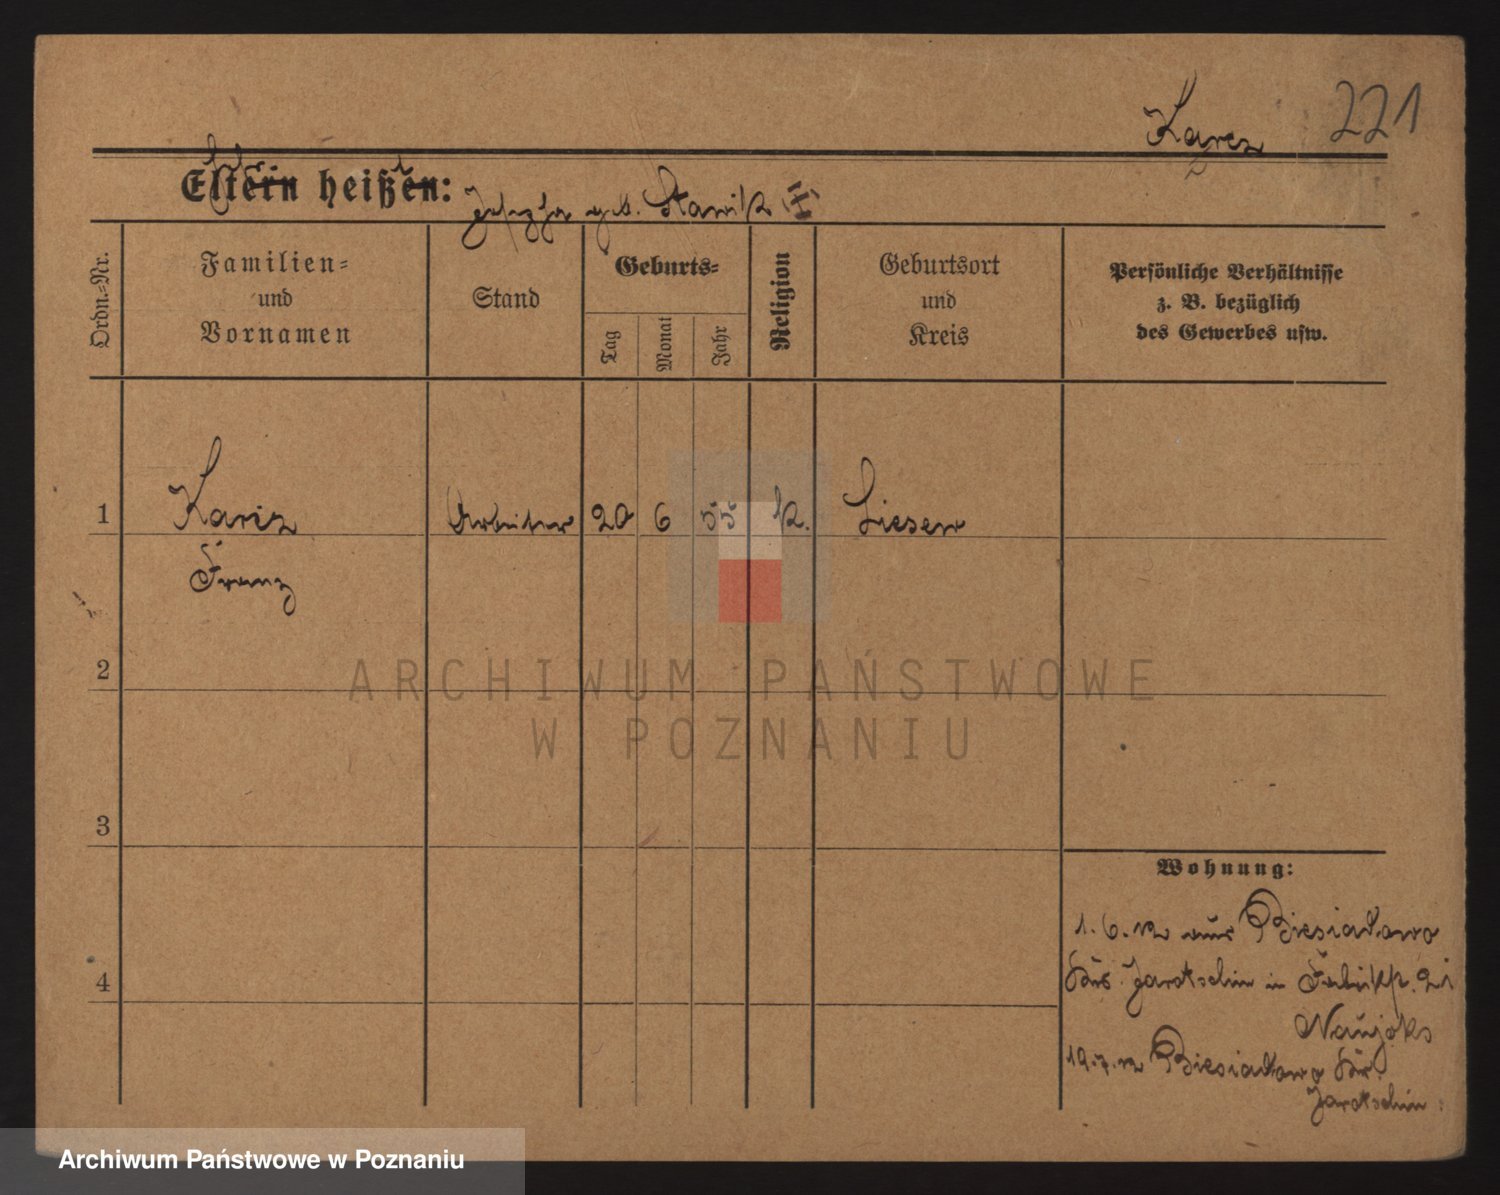 Karcz 221
Eltern heißen: Josepha geb. Stawik
Ordn.=Nr.
Familien=
und
Vornamen
Stand
Geburts=
Tag
Monat
Jahr
Religion
Geburtsort
und
Kreis
Persönliche Verhältnisse
z. B. bezüglich
des Gewerbes usw.
1 Karcz Arbeiter 20 6 55 k. Lissen
Franz
2
ARCHIWUM PAŃSTWOWE
W POZNANIU
3
4
Wohnung:
1. 6. 12 aus Biesiadowo
Krs. Jarotschin in 21
Naujoks
19.7.12 Biesiadowo Kr.
Jarotschin
Archiwum Państwowe w Poznaniu